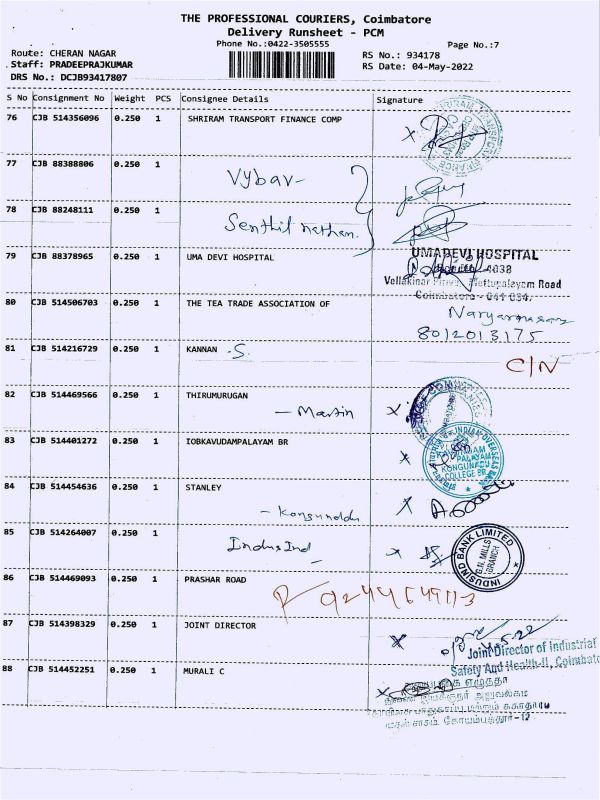 THE PROFESSIONAL COURIERS, Coimbatore
Delivery Runsheet - PCM
Phone No.:0422-3505555
Page No.:7
Route: CHERAN NAGAR
Staff: PRADEEPRAJKUMAR
DRS No.: DCJB93417807
RS No.: 934178
RS Date: 04-May-2022
S No Consignment No Weight PCS Consignee Details Signature
76 CJB 514356096 0.250 1 SHRIRAM TRANSPORT FINANCE COMP
77 CJB 88388806 0.250 1 Vybav
78 CJB 88248111 0.250 1 Senthil nathan
79 CJB 88378965 0.250 1 UMA DEVI HOSPITAL
UMADEVI HOSPITAL
Mettupalayam Road
80 CJB 514506703 0.250 1 THE TEA TRADE ASSOCIATION OF
8012013175
81 CJB 514216729 0.250 1 KANNAN .S
C/N
82 CJB 514469566 0.250 1 THIRUMURUGAN
- Martin X
83 CJB 514401272 0.250 1 IOBKAVUDAMPALAYAM BR X
INDIAN OVERSEAS BANK
KONGUNADU
COLLEGE BR.
84 CJB 514454636 0.250 1 STANLEY
- Kongunadu X
85 CJB 514264007 0.250 1 IndusInd X
INDUSIND BANK LIMITED
G.N. MILLS
BRANCH
86 CJB 514469093 0.250 1 PRASHAR ROAD
87 CJB 514398329 0.250 1 JOINT DIRECTOR X
Joint Director of Industrial
Safety And Health-II, Coimbato
88 CJB 514452251 0.250 1 MURALI C X